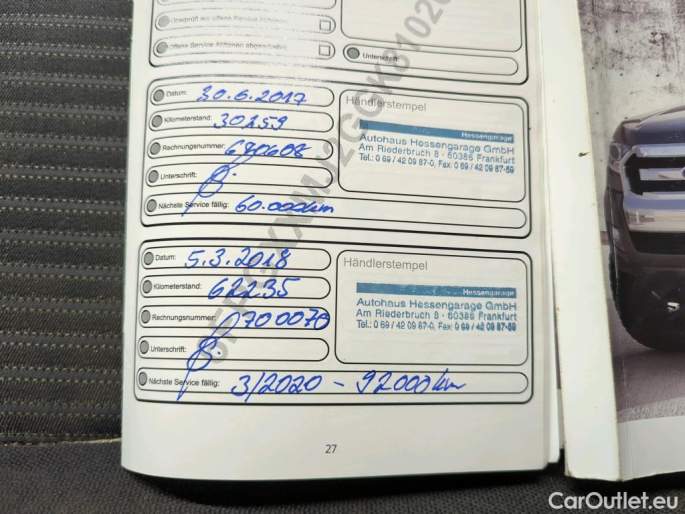 Unterschrift:
Datum: 30.6.2017
Händlerstempel
Kilometerstand: 30259
Hessengarage
Autohaus Hessengarage GmbH
Am Riederbruch 8 - 60386 Frankfurt
Tel.: 0 69 / 42 09 87-0, Fax: 0 69 / 42 09 87-59
Rechnungsnummer: 680608
Unterschrift:
Nächste Service fällig: 60.000km
Datum: 5.3.2018
Händlerstempel
Kilometerstand: 62235
Hessengarage
Autohaus Hessengarage GmbH
Am Riederbruch 8 - 60386 Frankfurt
Tel.: 0 69 / 42 09 87-0, Fax: 0 69 / 42 09 87-59
Rechnungsnummer: 0700070
Unterschrift:
Nächste Service fällig: 3/2020 - 92000km
27
CarOutlet.eu